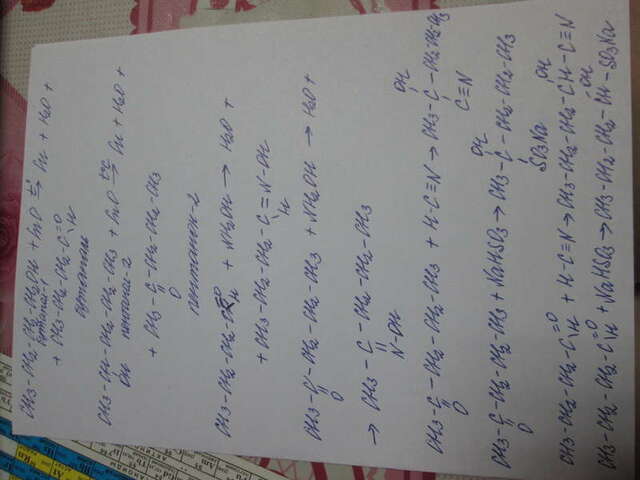 CH3-CH2-CH2-CH2OH + CuO →t° Cu + H2O +
бутанол-1
+ CH3-CH2-CH2-C=O
H
бутаналь
CH3-CH-CH2-CH2-CH3 + CuO →t° Cu + H2O +
OH пентанол-2
+ CH3-C-CH2-CH2-CH3
O
пентанон-2
+ NH2OH → H2O +
+ CH3-CH2-CH2-C=N-OH
H
CH3-C-CH2-CH2-CH3 + NH2OH → H2O +
O
→ CH3-C-CH2-CH2-CH3
N-OH
OH
CH3-C-CH2-CH2-CH3 + H-C≡N → CH3-C-CH2-CH2-CH3
O C≡N
OH
CH3-C-CH2-CH2-CH3 + NaHSO3 → CH3-C-CH2-CH2-CH3
O SO3Na
OH
CH3-CH2-CH2-C=O + H-C≡N → CH3-CH2-CH2-CH-C≡N
H
OH
CH3-CH2-CH2-C=O + NaHSO3 → CH3-CH2-CH2-CH-SO3Na
H